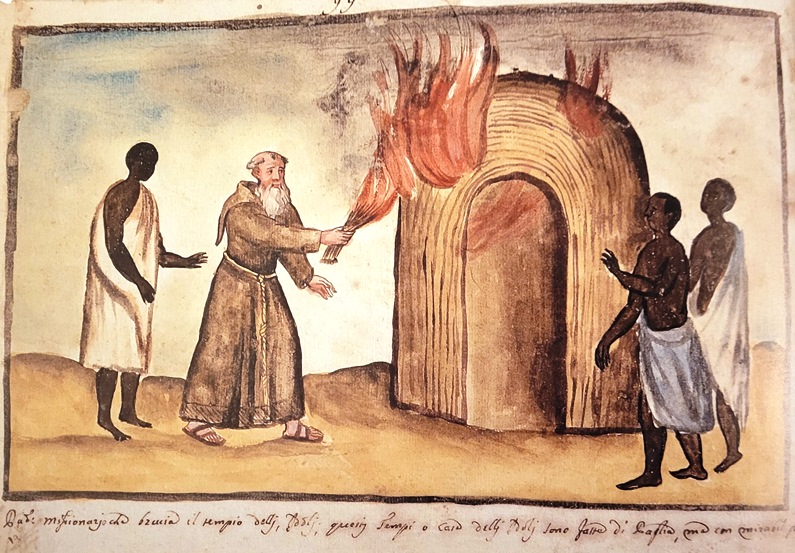 99
Padre missionario che brucia il tempio delli Idoli; questi Tempi o Case delli Idoli sono fatte di Paglia, ma con mirabil